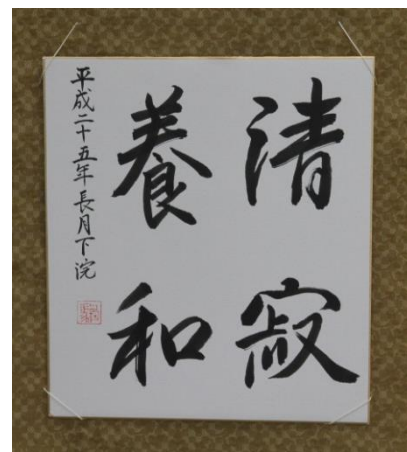 清寂
養和
平成二十五年長月下浣